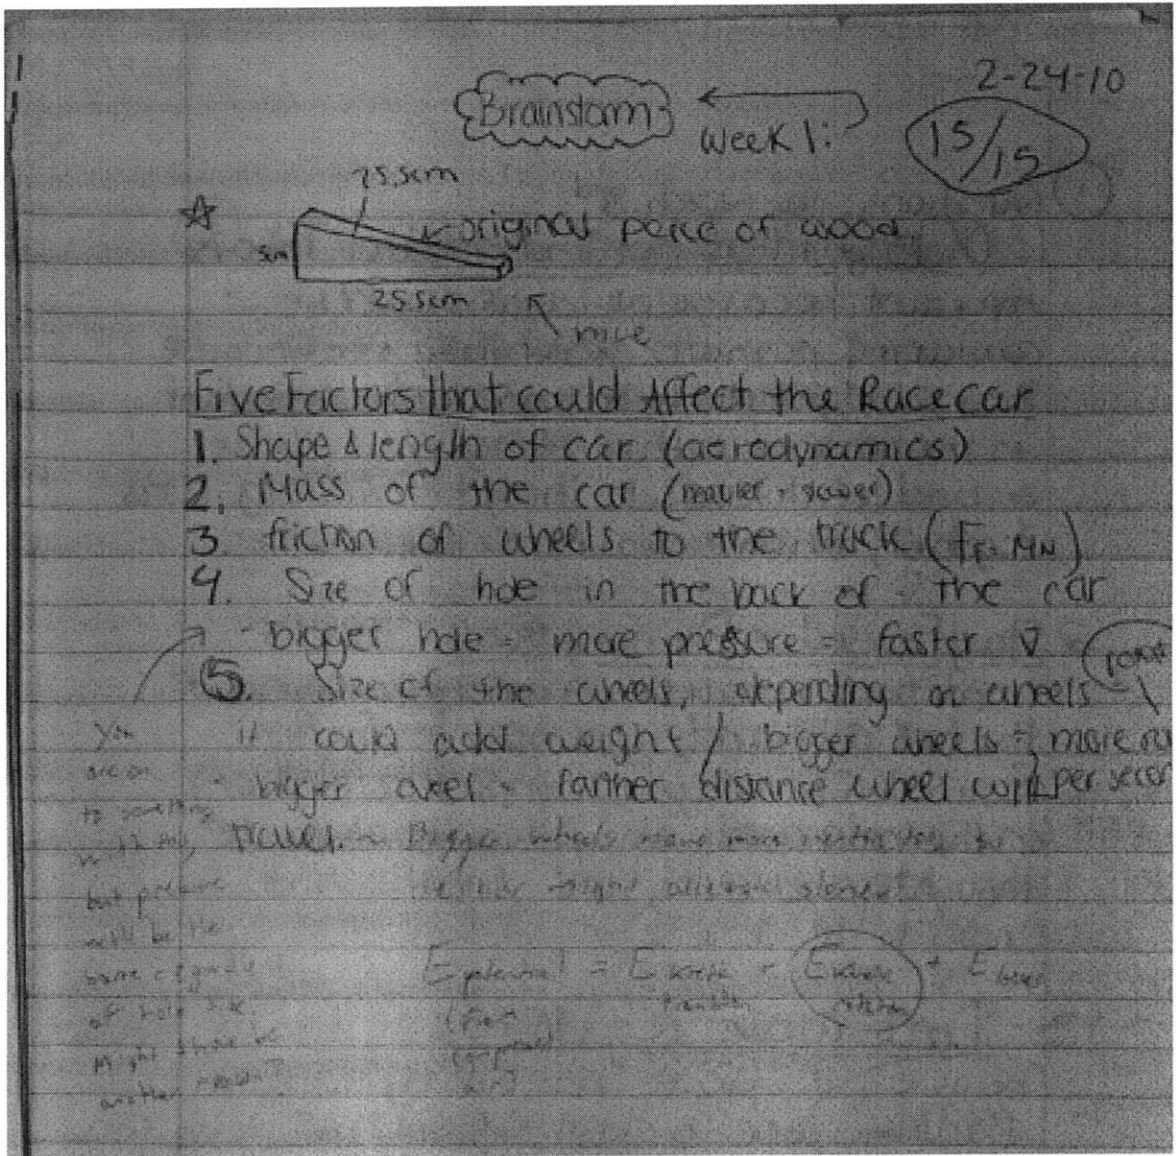 2-24-10
Brainstorm
Week 1:
15/15
25.5cm
original peice of wood
5cm
25.5cm
nice
Five Factors that could Affect the Racecar
1. Shape & length of car (aerodynamics)
2. Mass of the car
3. friction of wheels to the track (Fr= MN)
4. Size of hole in the back of the car
- bigger hole = more pressure = faster V
5. Size of the wheels, depending on wheels
it could add weight / bigger wheels = more
- bigger weel = farther distance wheel will per
travel. Bigger wheels have more
You
are on
to something
with this,
but pressure
will be the
same regardless
of hole size.
Might there be
another reason?
E potential = E kinetic + E kinetic + E losses
(from
air)